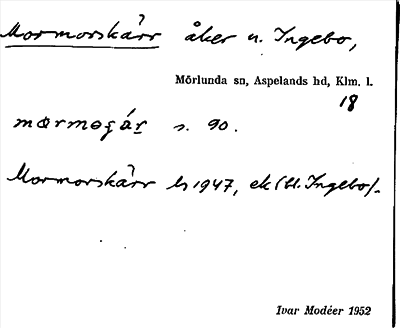 Mormorskärr åker u. Ingebo,
Mörlunda sn, Aspelands hd, Klm. l.
18
s. 90.
Mormorskärr 1947, ek (bl. Ingebo).
Ivar Modéer 1952